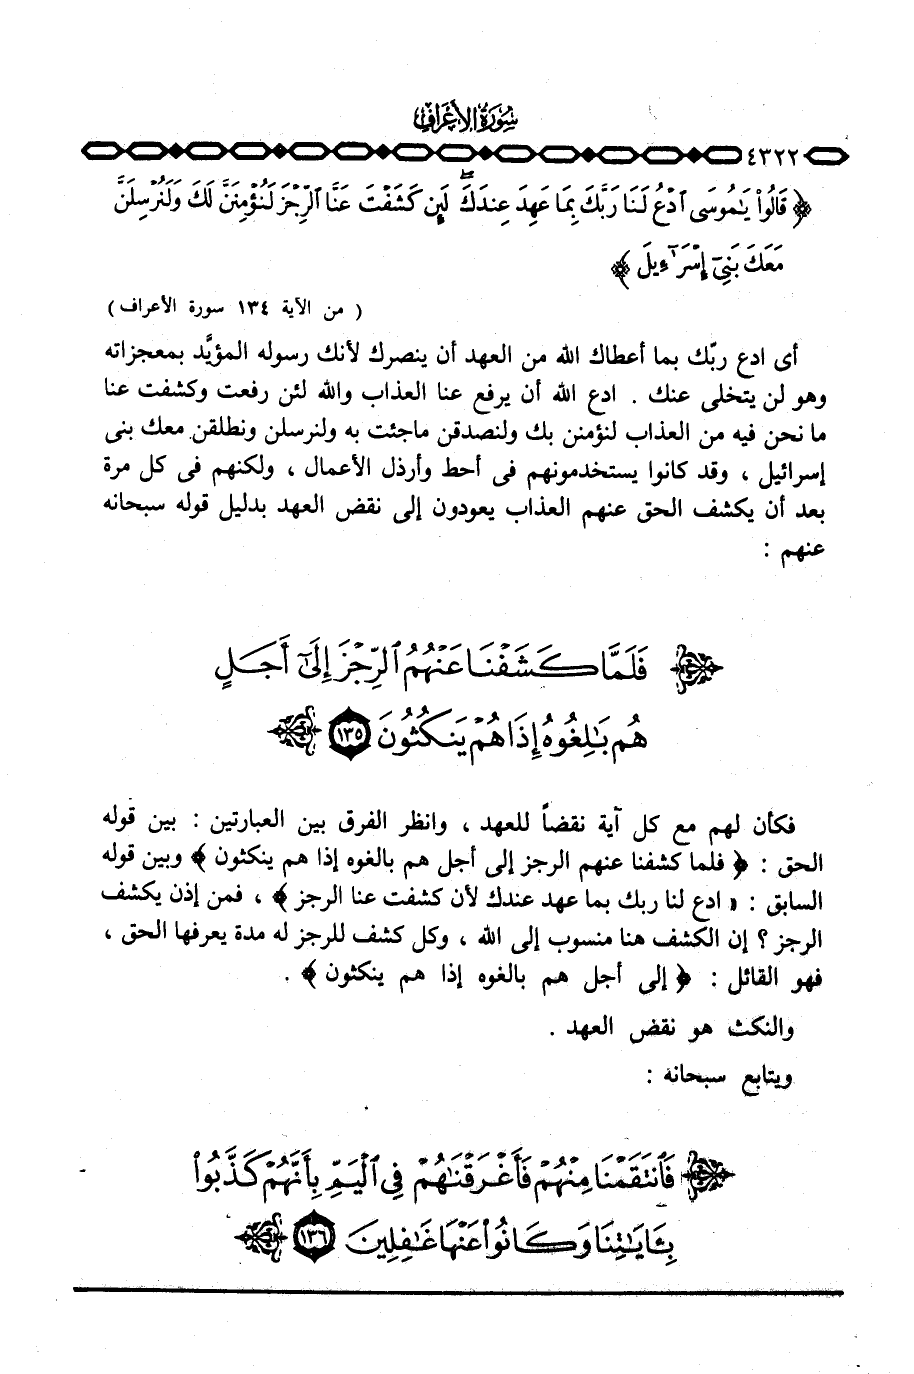 سُورَةُ الأَعْرَافِ
٤٣٢٢
﴿ قَالُواْ يَـٰمُوسَى ٱدْعُ لَنَا رَبَّكَ بِمَا عَهِدَ عِندَكَ ۖ لَئِن كَشَفْتَ عَنَّا ٱلرِّجْزَ لَنُؤْمِنَنَّ لَكَ وَلَنُرْسِلَنَّ
مَعَكَ بَنِىٓ إِسْرَٰٓءِيلَ ﴾
( من الآية ١٣٤ سورة الأعراف )
أى ادع ربّك بما أعطاك الله من العهد أن ينصرك لأنك رسوله المؤيَّد بمعجزاته
وهو لن يتخلى عنك . ادع الله أن يرفع عنا العذاب والله لئن رفعت وكشفت عنا
ما نحن فيه من العذاب لنؤمنن بك ولنصدقن ماجئت به ولنرسلن ونطلقن معك بنى
إسرائيل ، وقد كانوا يستخدمونهم فى أحط وأرذل الأعمال ، ولكنهم فى كل مرة
بعد أن يكشف الحق عنهم العذاب يعودون إلى نقض العهد بدليل قوله سبحانه
عنهم :
فَلَمَّا كَشَفْنَا عَنْهُمُ ٱلرِّجْزَ إِلَىٰٓ أَجَلٍ
هُم بَـٰلِغُوهُ إِذَا هُمْ يَنكُثُونَ ١٣٥
فكأن لهم مع كل آية نقضاً للعهد ، وانظر الفرق بين العبارتين : بين قوله
الحق : ﴿ فلما كشفنا عنهم الرجز إلى أجل هم بالغوه إذا هم ينكثون ﴾ وبين قوله
السابق : « ادع لنا ربك بما عهد عندك لأن كشفت عنا الرجز ﴾ ، فمن إذن يكشف
الرجز ؟ إن الكشف هنا منسوب إلى الله ، وكل كشف للرجز له مدة يعرفها الحق ،
فهو القائل : ﴿ إلى أجل هم بالغوه إذا هم ينكثون ﴾ .
والنكث هو نقض العهد .
ويتابع سبحانه :
فَٱنتَقَمْنَا مِنْهُمْ فَأَغْرَقْنَـٰهُمْ فِي ٱلْيَمِّ بِأَنَّهُمْ كَذَّبُواْ
بِـَٔايَـٰتِنَا وَكَانُواْ عَنْهَا غَـٰفِلِينَ ١٣٦